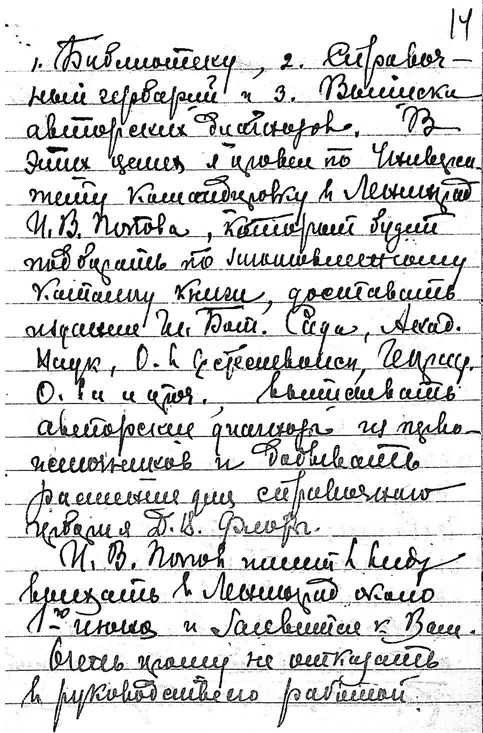 14
1. Библиотеку, 2. Справоч-
ный гербарий и 3. Выписки
авторских диагнозов. В
этих целях я провел по Универси-
тету командировку в Ленинград
И. В. Попова, который будет
подбирать по
каталогу книги, доставать
издания И. Бот. Сада, Акад.
Наук, О. Е.
О. Ва и проч. выписывать
авторские диагнозы из перво-
источников и добывать
растения для справочного
гербария Д. В. Флоры.
И. В. Попов имеет в виду
выехать в Ленинград около
1-го июня и явится к Вам.
Очень прошу не отказать
в руководстве его работой.